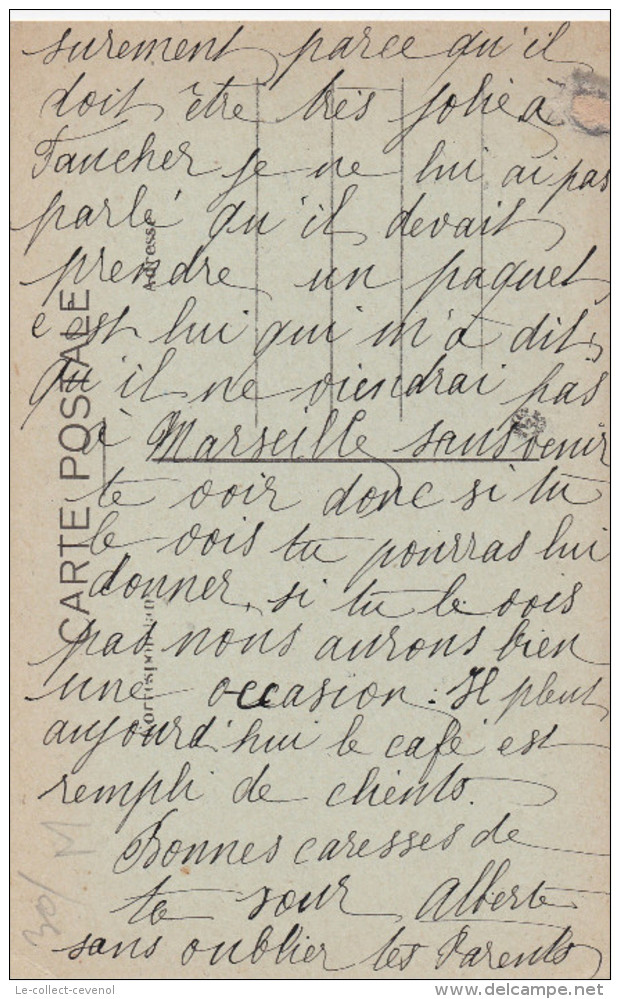 surement parce qu'il
doit être très jolie. a
Faucher je ne lui ai pas
parlé qu'il devait
prendre un paquet,
c'est lui qui m'a dit
qu'il ne viendrai pas
à Marseille sans venir
te voir donc si tu
le vois tu pourras lui
donner, si tu le vois
pas nous aurons bien
une occasion. Il pleut
aujourd'hui le café est
rempli de clients.
Bonnes caresses de
ta sœur Alberte
sans oublier les Parents
CARTE POSTALE
Correspondance
Adresse
30/
M
Le-collect-cevenol
delcampe.net